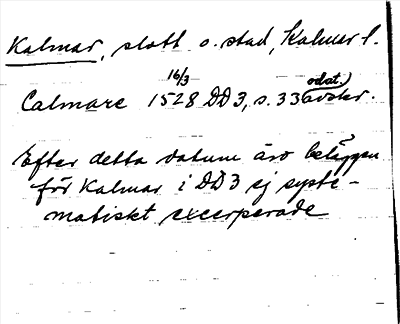 Kalmar, slott o. stad, Kalmar l.
Calmare 16/3 1528 DD3, s. 33 odat.) avskr.
Efter detta datum äro beläggen
för Kalmar i DD3 ej syste-
matiskt excerperade